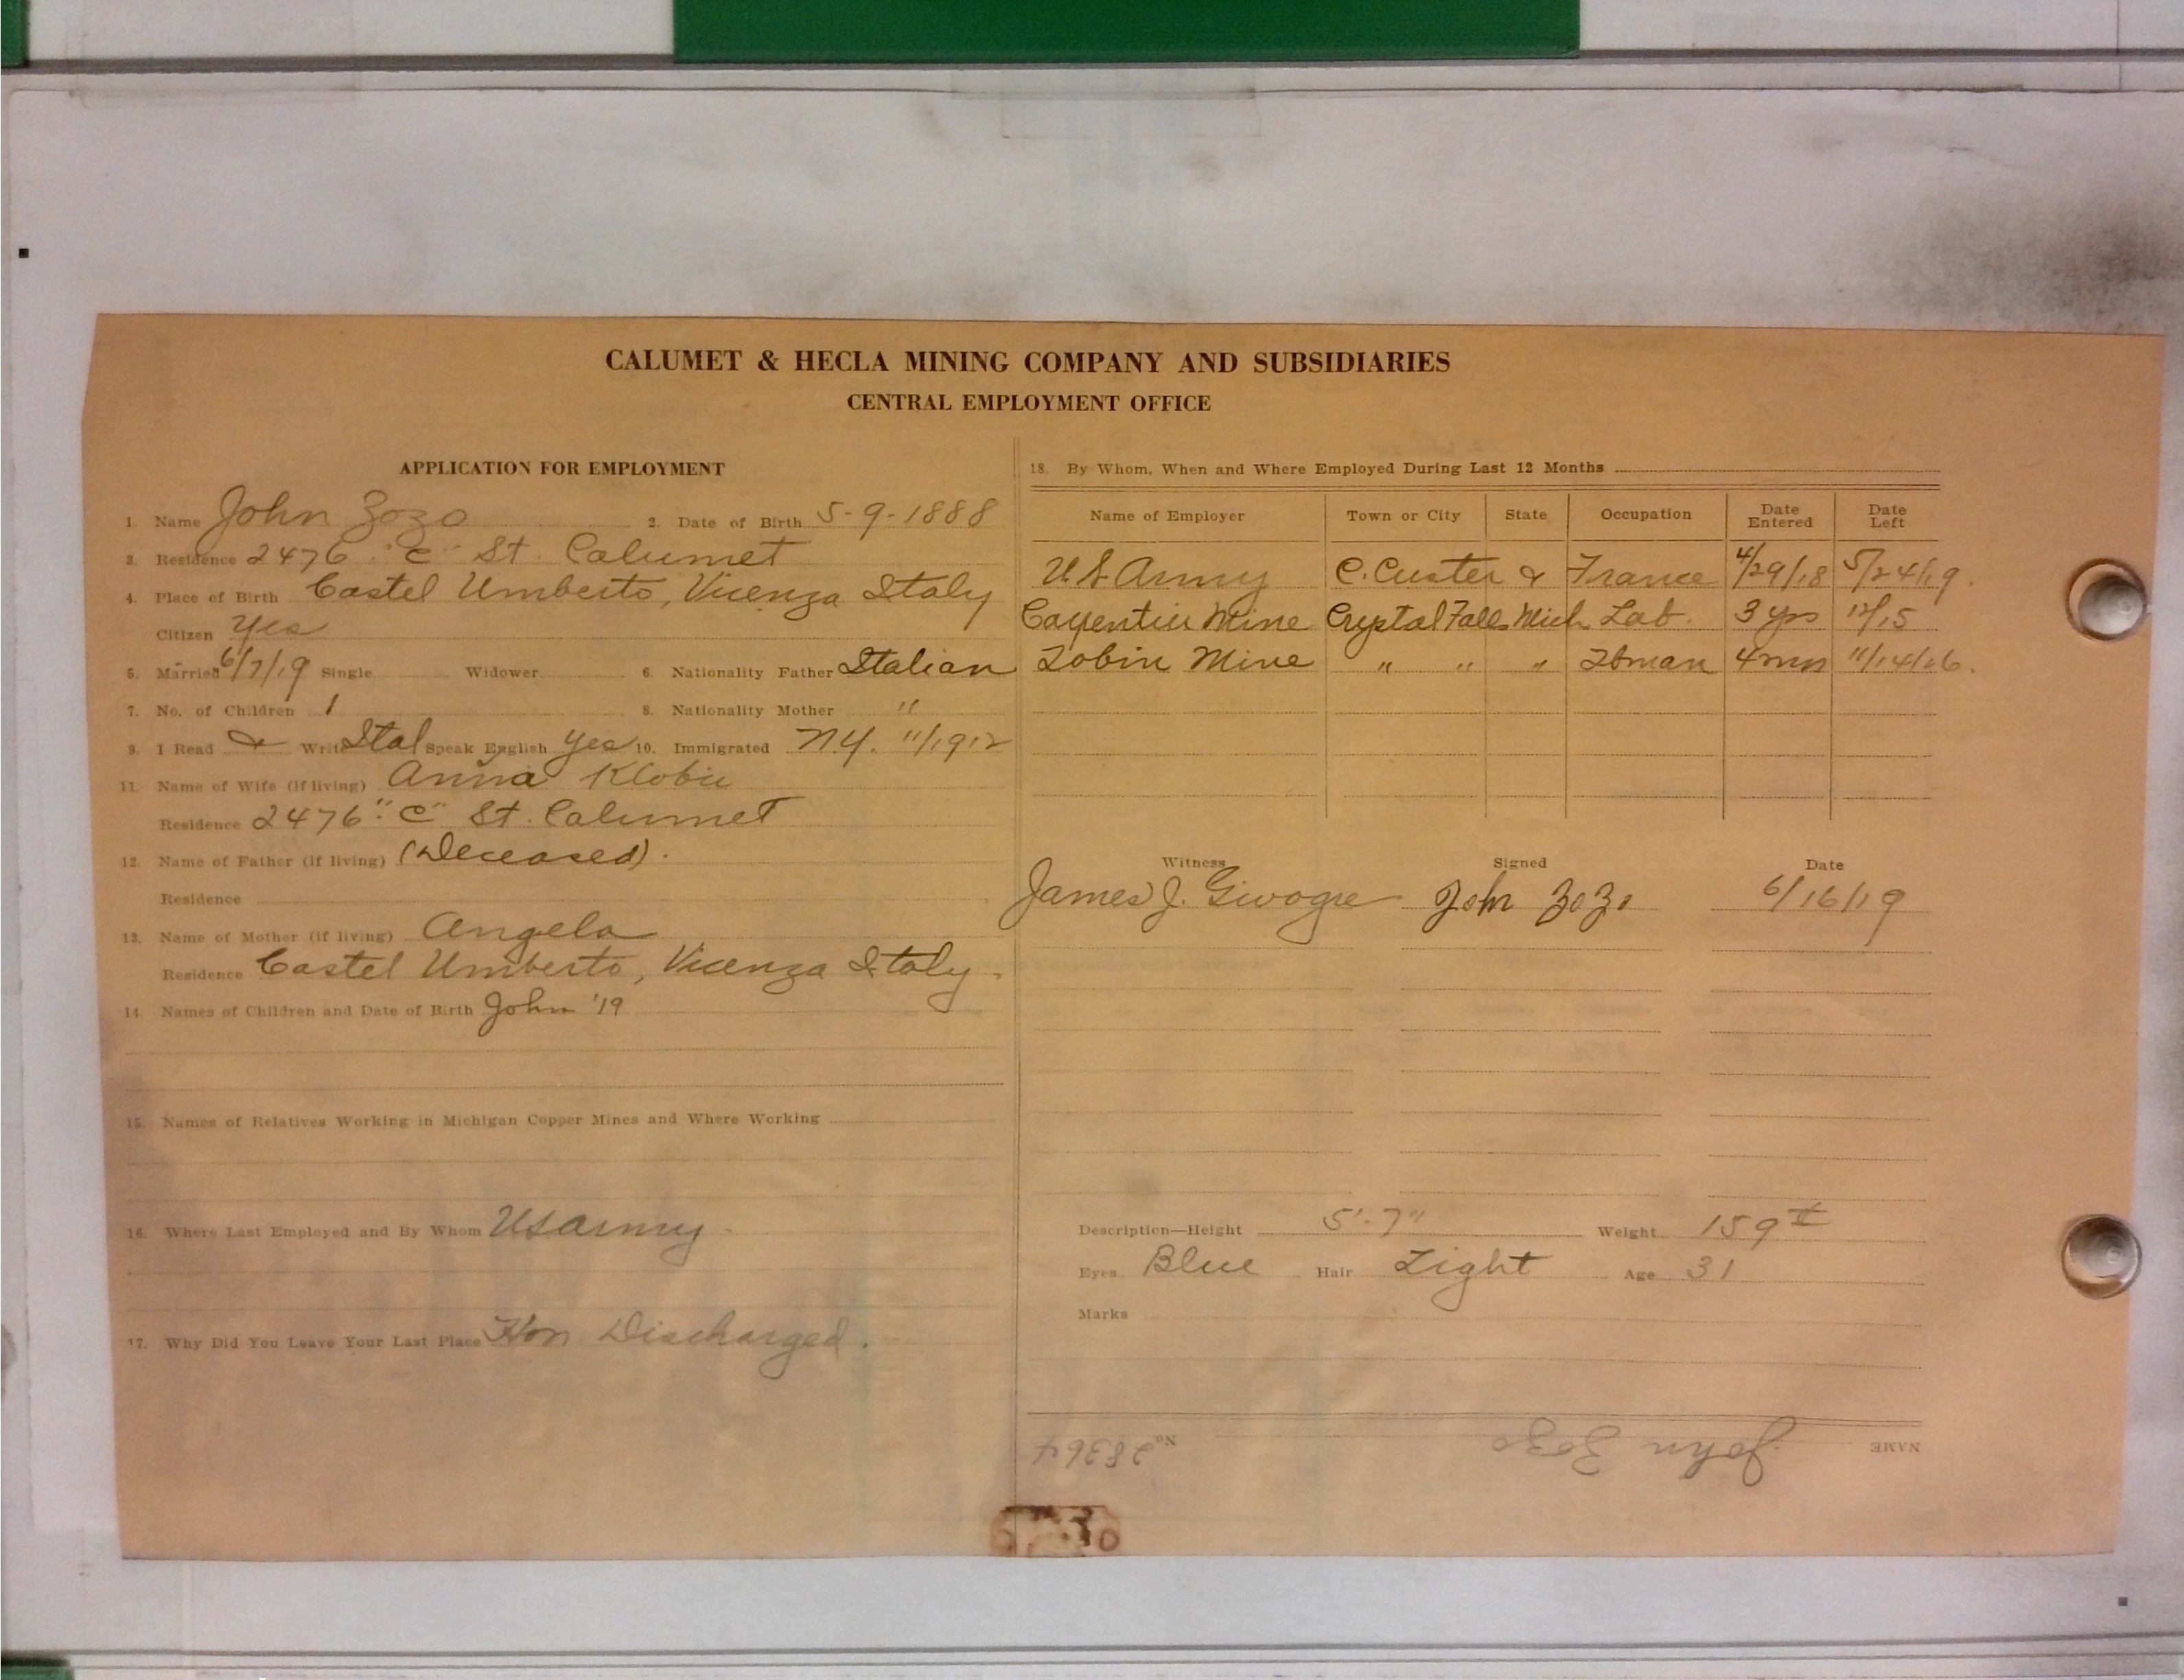 CALUMET & HECLA MINING COMPANY AND SUBSIDIARIES
CENTRAL EMPLOYMENT OFFICE
APPLICATION FOR EMPLOYMENT
1. Name John Zozo 2. Date of Birth 5-9-1888
3. Residence 2476 "C" St. Calumet
4. Place of Birth Castel Umberto, Vicenza Italy
Citizen Yes
5. Married 6/7/19 Single Widower 6. Nationality Father Italian
7. No. of Children 1 8. Nationality Mother "
9. I Read & Write Ital Speak English Yes 10. Immigrated N.Y. 11/1912
11. Name of Wife (if living) Anna
Residence 2476 "C" St. Calumet
12. Name of Father (if living) (Deceased).
Residence
13. Name of Mother (if living) Angela
Residence Castel Umberto, Vicenza Italy.
14. Names of Children and Date of Birth John '19
15. Names of Relatives Working in Michigan Copper Mines and Where Working
16. Where Last Employed and By Whom US Army
17. Why Did You Leave Your Last Place Hon Discharged.
18. By Whom, When and Where Employed During Last 12 Months
Name of Employer Town or City State Occupation Date Entered Date Left
U S Army C. Custer & France 4/29/18 5/24/19.
Mine Crystal Falls Mich Lab. 3 yrs 12/15
Tobin Mine " " " 4 mn 11/14/06.
Witness Signed Date
James J. John ZoZo 6/16/19
Description—Height 5'-7" Weight 159
Eyes Blue Hair Light Age 31
Marks
NAME John Zozo No. 28364